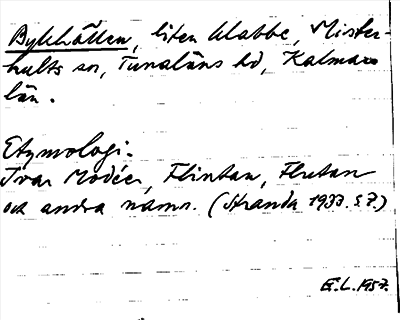 Bykhällen, liten klabbe, Mister-
hults sn, Tunaläns hd, Kalmar
län.
Etymologi.
Ivar Modéer, Flintan, Flutan
och andra namn. (Stranda 1933. s 7.)
G.L. 1957.